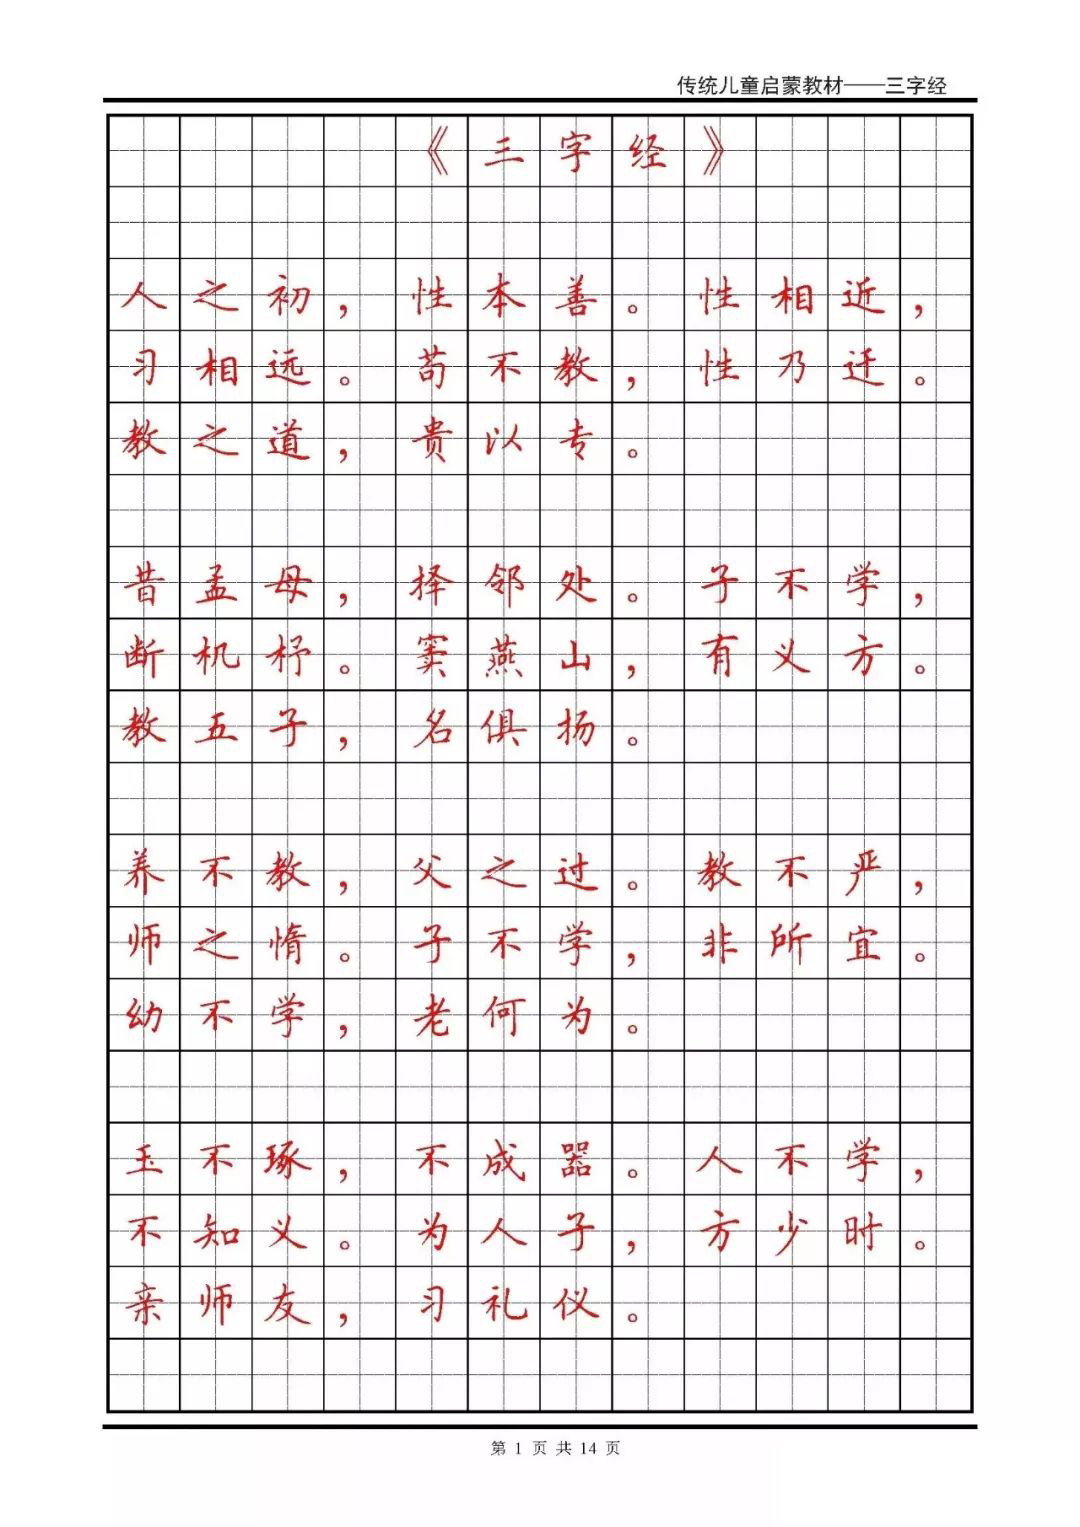 传统儿童启蒙教材——三字经
《三字经》
人之初，性本善。性相近，
习相远。苟不教，性乃迁。
教之道，贵以专。
昔孟母，择邻处。子不学，
断机杼。窦燕山，有义方。
教五子，名俱扬。
养不教，父之过。教不严，
师之惰。子不学，非所宜。
幼不学，老何为。
玉不琢，不成器。人不学，
不知义。为人子，方少时。
亲师友，习礼仪。
第 1 页 共 14 页